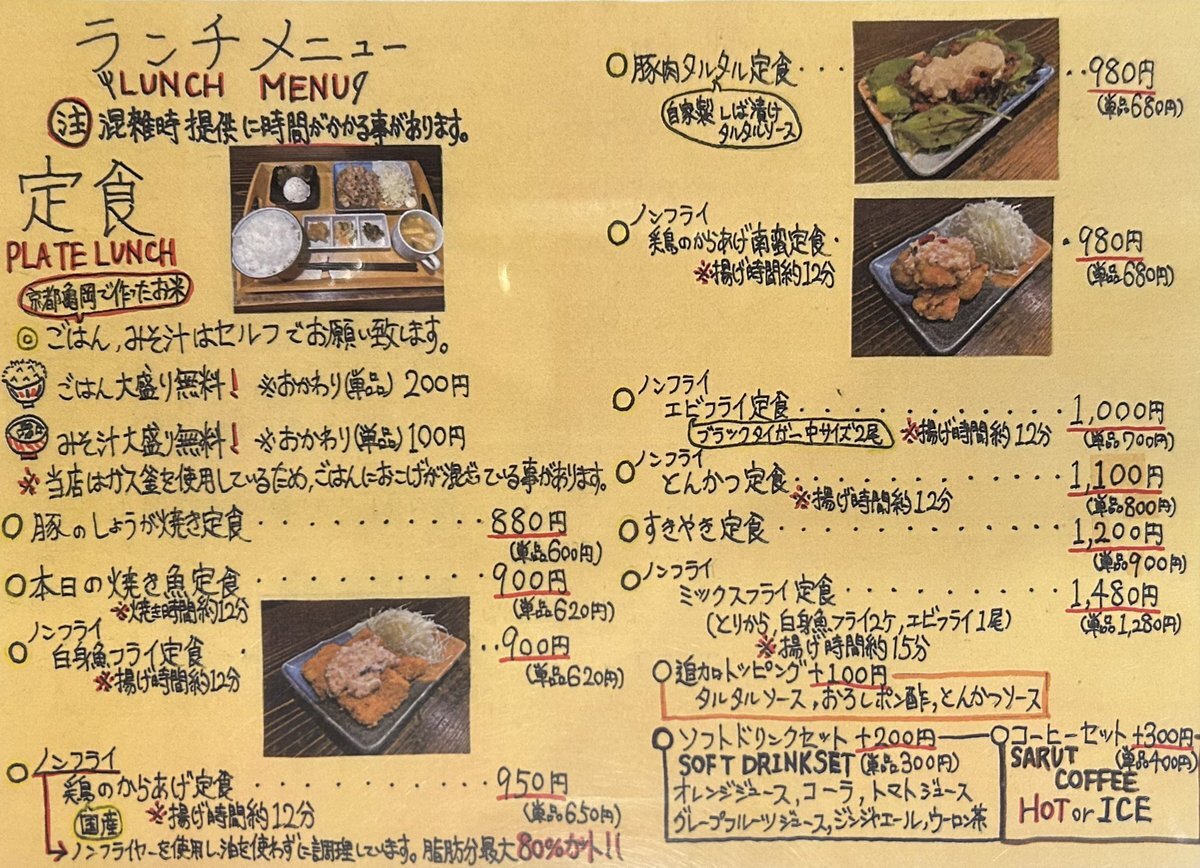 ランチメニュー
LUNCH MENU
注 混雑時提供に時間がかかる事があります。
定食
PLATE LUNCH
京都亀岡で作ったお米
◎ごはん,みそ汁はセルフでお願い致します。
ごはん大盛り無料! ※おかわり(単品)200円
みそ汁大盛り無料! ※おかわり(単品)100円
※当店はガス釜を使用しているため,ごはんにおこげが混ざっている事があります。
○豚のしょうが焼き定食・・・・・・・・・880円
(単品600円)
○本日の焼き魚定食・・・・・・・・・900円
※焼き時間約12分
(単品620円)
○ノンフライ
白身魚フライ定食・・・900円
※揚げ時間約12分
(単品620円)
○ノンフライ
鶏のからあげ定食・・・・・・・・・950円
国産
※揚げ時間約12分
(単品650円)
→ノンフライヤーを使用し油を使わずに調理しています。脂肪分最大80%カット!!
○豚肉タルタル定食・・・・・980円
自家製しば漬け
タルタルソース
(単品680円)
○ノンフライ
鶏のからあげ南蛮定食・・980円
※揚げ時間約12分
(単品680円)
○ノンフライ
エビフライ定食・・・・・・・・・1,000円
ブラックタイガー中サイズ2尾
※揚げ時間約12分
(単品700円)
○ノンフライ
とんかつ定食・・・・・・・・・1,100円
※揚げ時間約12分
(単品800円)
○すきやき定食・・・・・・・・・1,200円
(単品900円)
○ノンフライ
ミックスフライ定食・・・・・・・・・1,480円
(とりから,白身魚フライ2ケ,エビフライ1尾)
(単品1,280円)
※揚げ時間約15分
○追加トッピング+100円
タルタルソース,おろしポン酢,とんかつソース
○ソフトドリンクセット+200円
SOFT DRINKSET(単品300円)
オレンジジュース,コーラ,トマトジュース
グレープフルーツジュース,ジンジャエール,ウーロン茶
○コーヒーセット+300円
(単品400円)
SARUT
COFFEE
HOT or ICE